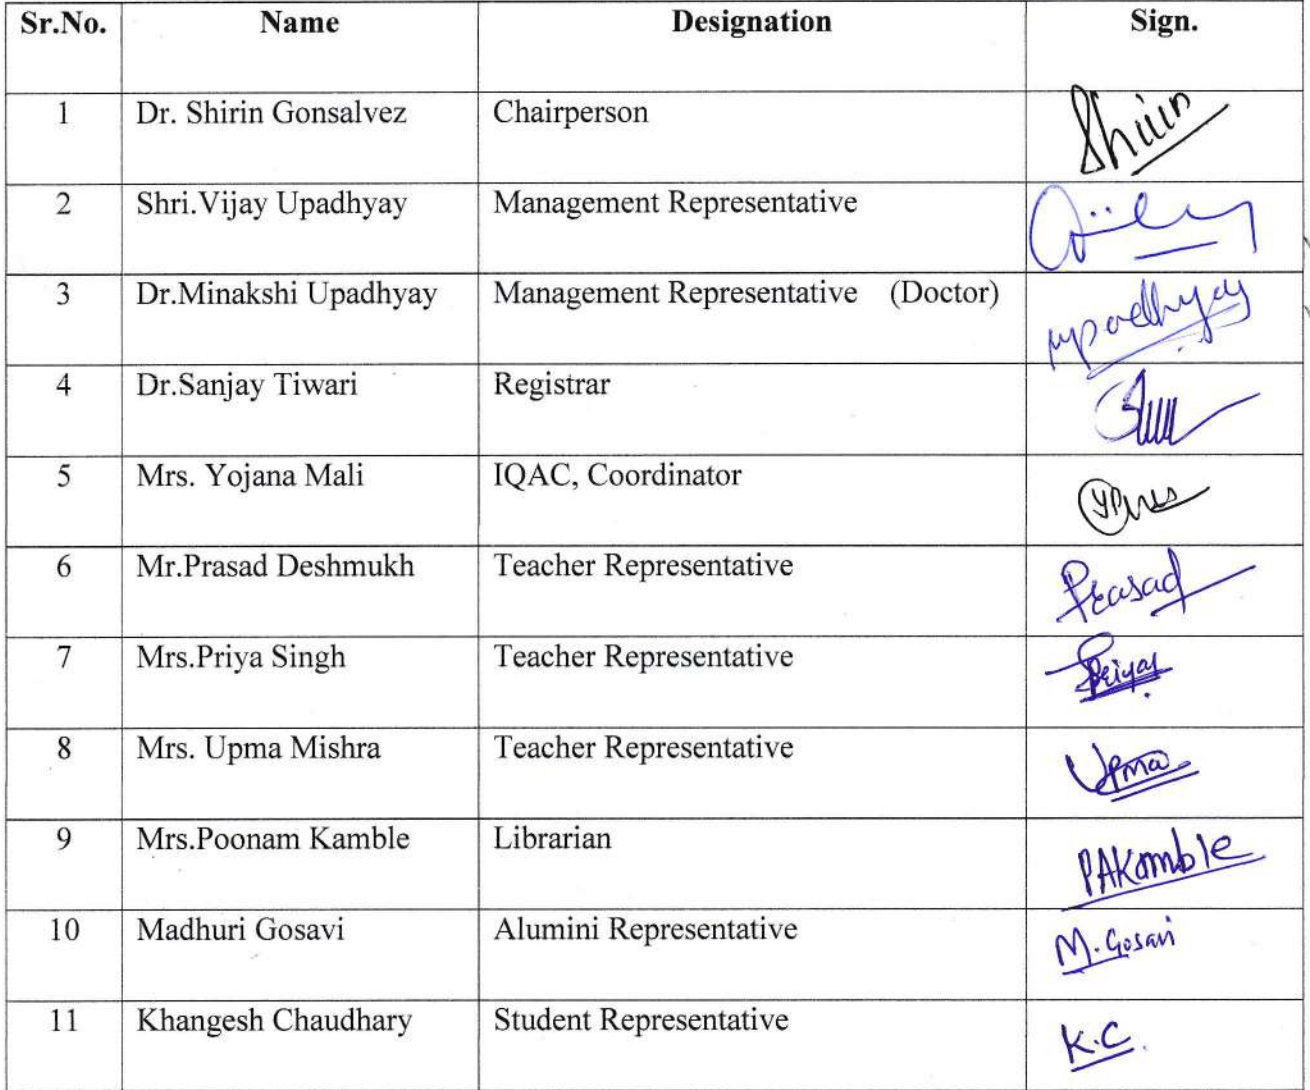 Sr.No. Name Designation Sign.
1 Dr. Shirin Gonsalvez Chairperson Shirin
2 Shri.Vijay Upadhyay Management Representative
3 Dr.Minakshi Upadhyay Management Representative (Doctor) mpadhyay
4 Dr.Sanjay Tiwari Registrar
5 Mrs. Yojana Mali IQAC, Coordinator
6 Mr.Prasad Deshmukh Teacher Representative Prasad
7 Mrs.Priya Singh Teacher Representative Priya
8 Mrs. Upma Mishra Teacher Representative Upma
9 Mrs.Poonam Kamble Librarian PAKamble
10 Madhuri Gosavi Alumini Representative M. Gosavi
11 Khangesh Chaudhary Student Representative K.C.